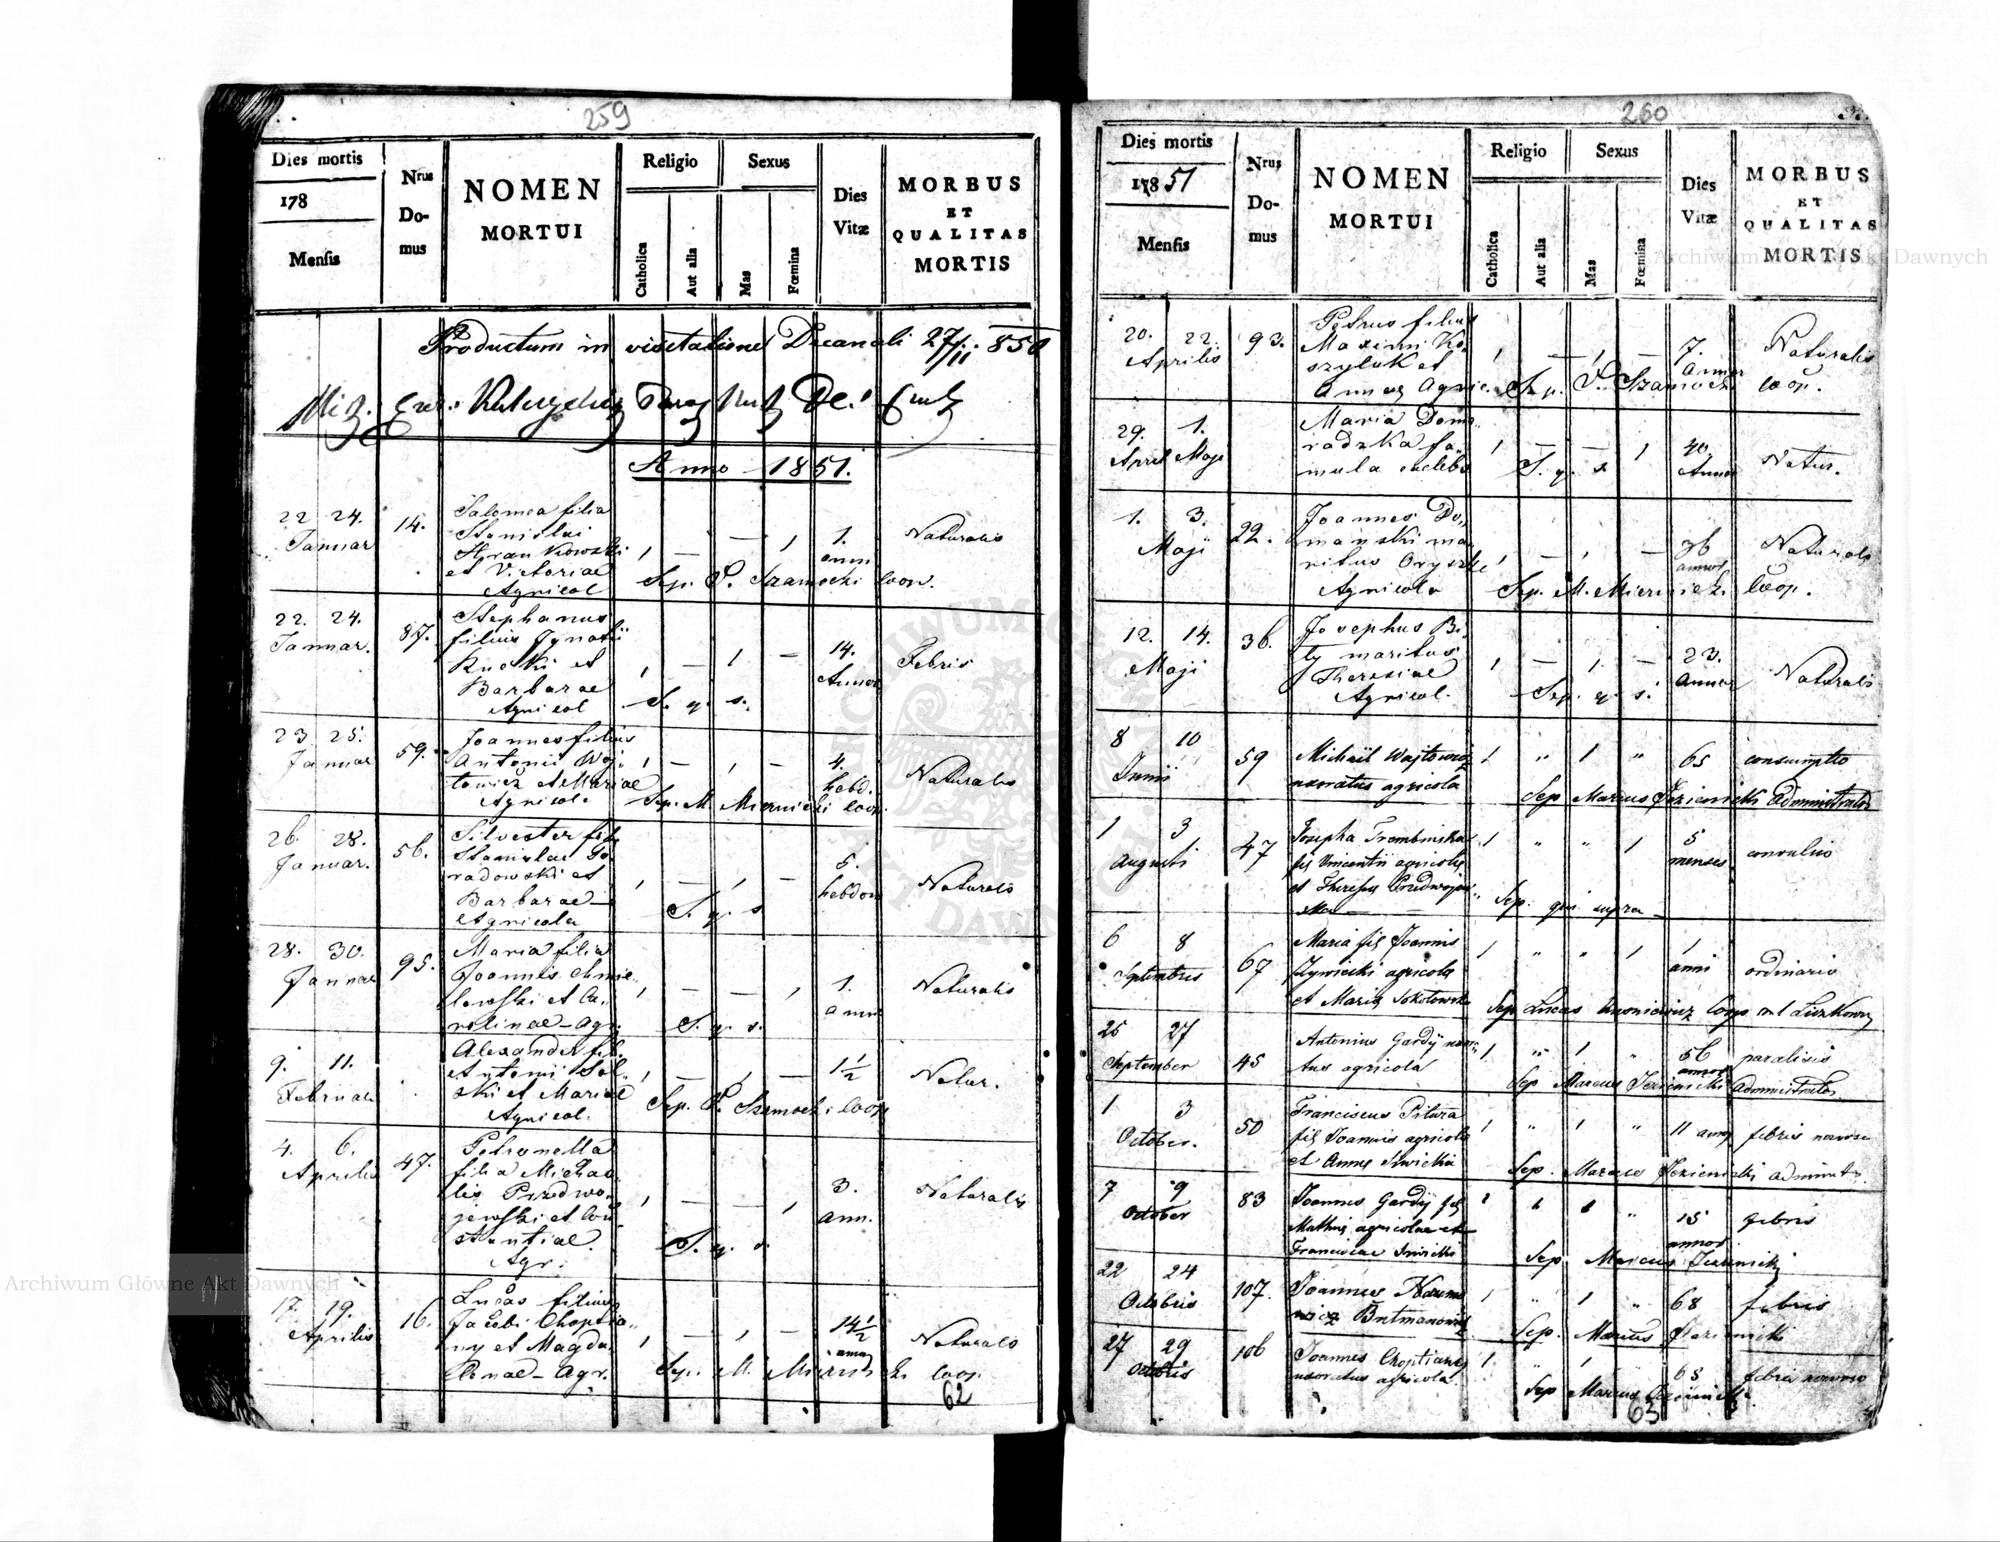 259
Dies mortis
178
Mensis
Nrus
Do-
mus
NOMEN
MORTUI
Religio
Catholica
Aut alia
Sexus
Mas
Fœmina
Dies
Vitæ
MORBUS
ET
QUALITAS
MORTIS
Productum in visitatione Decanali 27/11 850
Anno 1851.
22 24.
Januar
14.
Salomea filia
Stanislai
et Victoriae
Agricol
1 — — 1
1.
ann
Naturalis
Sep. P. Szamocki Coop.
22. 24.
Januar.
87.
Stephanus
filius Ignatii
Rucki et
Barbarae
Agricol
1 — 1 —
14.
Annor
Febris
S. q. s.
23 25.
Januar
59.
Joannes filius
Antonii Woj
towicz et Mariae
Agricol.
1 — 1 —
4.
hebd.
Naturalis
Sep. M. Miernicki Coop.
26. 28.
Januar.
56.
Silvester fil.
Stanislai Go
radowski et
Barbarae —
Agricola
1 — 1 —
5.
hebdom
Naturalis
S. q. s
28. 30.
Januar
95.
Maria filia
Joannis Chmie
lewski et Ca,
rolinae — Agr.
1 — — 1
1.
ann
Naturalis
S. q. s.
9. 11.
Februar
Alexander fil.
Antonii Sol,
ski et Mariae
Agricol.
1 — 1 —
1½
Natur.
Sep. P. Szamocki Coop
4. 6.
Aprilis
47.
Petronella
filia Michae
lis Przedwo,
jewski et Con
stantiae
Agr.
1 — — 1
3.
ann.
Naturalis
S. q. s.
17. 19.
Aprilis
16.
Lucas filius
Jacobi Choptia,
ny et Magda,
lenae — Agr.
1 — 1 —
14½
annor
Naturalis
Sep. M. Miernicki Coop
62
260
Dies mortis
17851
Mensis
Nrus
Do-
mus
NOMEN
MORTUI
Religio
Catholica
Aut alia
Sexus
Mas
Fœmina
Dies
Vitæ
MORBUS
ET
QUALITAS
MORTIS
20. 22.
Aprilis
93.
Petrus filius
Maximi Ko,
szyluk et
Annae Agric.
1 — 1 —
7.
Annor
Naturalis
Sep. P. Szamocki Coop.
29. 1.
April Maji
Maria Domo
radzka fa,
mula caelebs
1 — — 1
40.
Annor
Natur.
S. q. s
1. 3.
Maji
22.
Joannes Do,
manski ma
ritus
Agricola
1 — 1 —
36
annor
Naturalis
Sep. M. Miernicki Coop.
12. 14.
Maji
36.
Josephus Bi,
ły maritus
Theresiae
Agricol.
1 — 1. —
23.
Annor
Naturalis
Sep. q. s.
8 10
Junii
59
Michail Wojtowicz
uxoratus agricola
1 " 1 "
65
consumptio
Sep Marcus Jezienicki Administrator
1 3
Augusti
47
Josepha Trembinska
fil Vincentii agricolae
et Theresiae Przedwojew,
ska —
1 " " 1
5
menses
convulsio
Sep. qui supra —
6 8
Septembris
67
Maria fil Joannis
Zywiecki agricolae
et Maria Sokołowska
1 " " 1
1
anni
ordinaria
Sep Lucas
25 27
September
45
Antonius Gardÿ uxora
tus agricola
1. " 1 "
56
annor
paralisis
Sep Marcus Jezienicki Administrator
1 3
October.
50
Franciscus Pitura
fil Joannis agricola
et Anna Siwicka
1 " 1 "
11 ann
febris nervosa
Sep. Marcus Jezienicki administ.
7 9
October
83
Joannes Gardÿ fil
Mathiae agricolae et
Franciscae Siwicki
15
annor
febris
Sep Marcus Jezienicki
22 24
Octobris
107.
Joannes
1 " 1 "
68
febris
Sep. Marcus Jezienicki
27 29
Octobris
106
Joannes Choptiany
uxoratus agricola
1. " 1 "
65
febris nervosa
Sep Marcus Jezienicki
63
Archiwum Główne Akt Dawnych